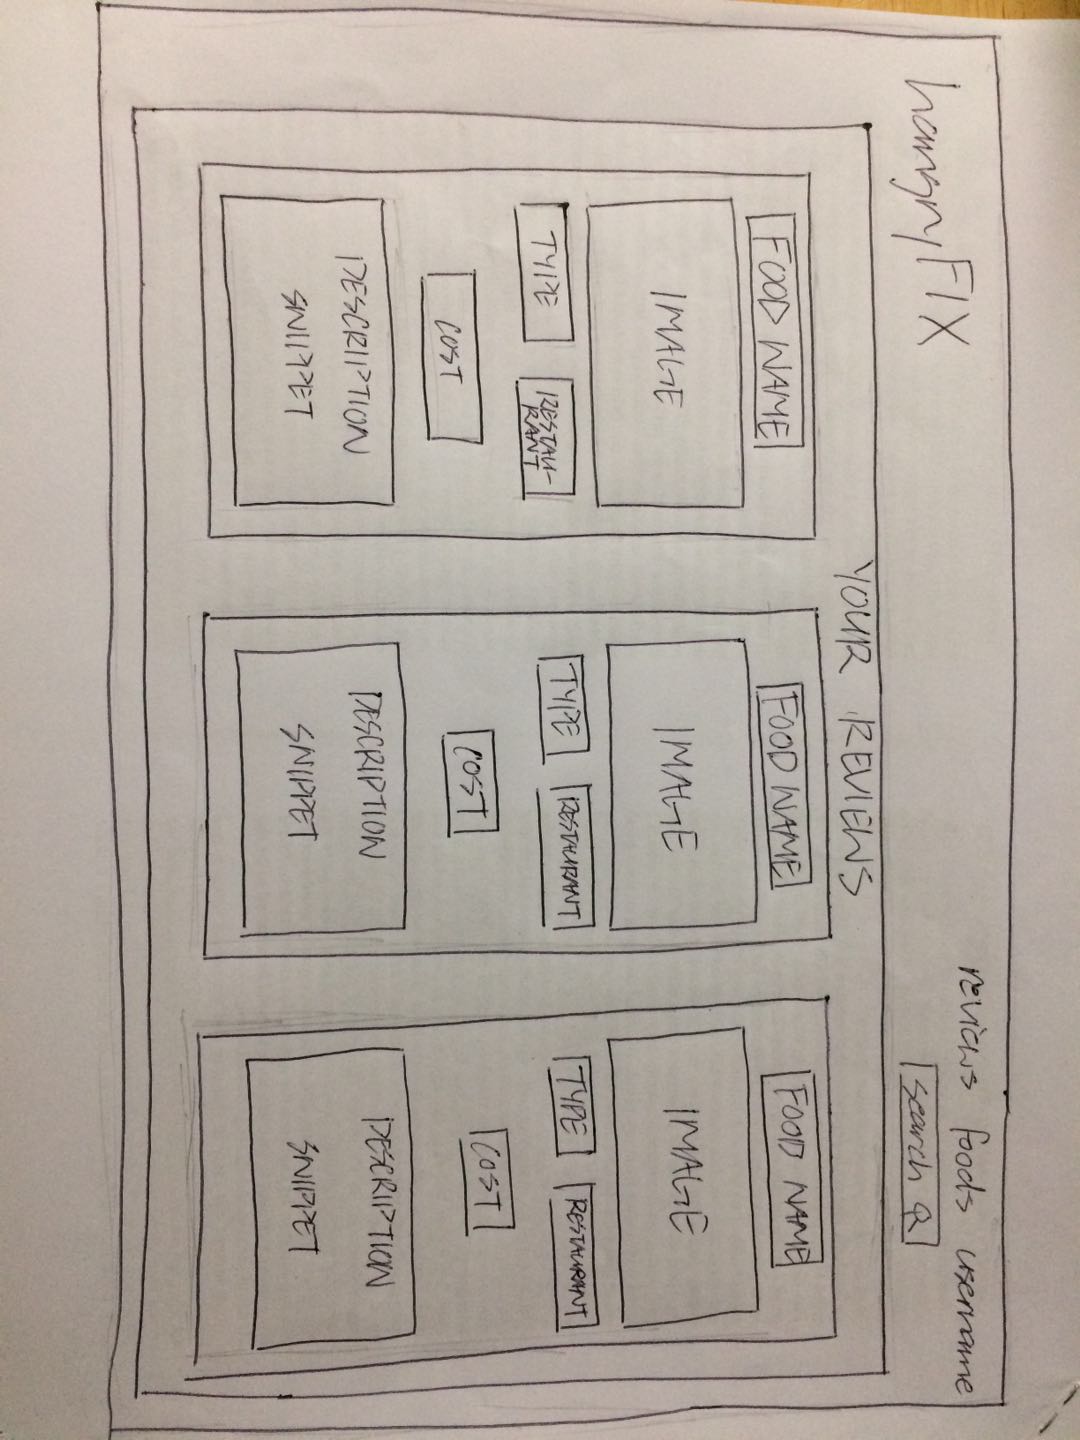 hangryFIX
reviews foods username
search
YOUR REVIEWS
FOOD NAME
IMAGE
TYPE
RESTAU-
RANT
COST
DESCRIPTION
SNIIPPET
FOOD NAME
IMAGE
TYPE
RESTAURANT
COST
DESCRIPTION
SNIPPET
FOOD NAME
IMAGE
TYPE
RESTAURANT
COST
DESCRIPTION
SNIPPET